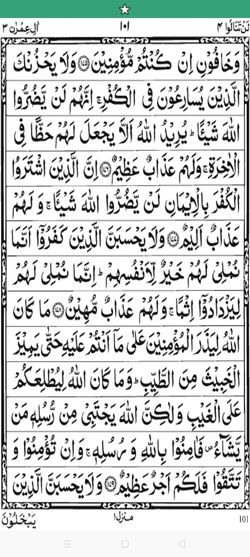 لن تنالوا ٤ ١٠١ اٰل عمرٰن ٣
وَخَافُوْنِ اِنْ كُنْتُمْ مُّؤْمِنِيْنَ ﴿١٧٥﴾ وَلَا يَحْزُنْكَ
الَّذِيْنَ يُسَارِعُوْنَ فِى الْكُفْرِ ۚ اِنَّهُمْ لَنْ يَّضُرُّوا
اللّٰهَ شَيْـًٔا ؕ يُرِيْدُ اللّٰهُ اَلَّا يَجْعَلَ لَهُمْ حَظًّا فِى
الْاٰخِرَةِ ۚ وَلَهُمْ عَذَابٌ عَظِيْمٌ ﴿١٧٦﴾ اِنَّ الَّذِيْنَ اشْتَرَوُا
الْكُفْرَ بِالْاِيْمَانِ لَنْ يَّضُرُّوا اللّٰهَ شَيْـًٔا ۚ وَلَهُمْ
عَذَابٌ اَلِيْمٌ ﴿١٧٧﴾ وَلَا يَحْسَبَنَّ الَّذِيْنَ كَفَرُوْۤا اَنَّمَا
نُمْلِىْ لَهُمْ خَيْرٌ لِّاَنْفُسِهِمْ ؕ اِنَّمَا نُمْلِىْ لَهُمْ
لِيَزْدَادُوْۤا اِثْمًا ۚ وَلَهُمْ عَذَابٌ مُّهِيْنٌ ﴿١٧٨﴾ مَا كَانَ
اللّٰهُ لِيَذَرَ الْمُؤْمِنِيْنَ عَلٰى مَاۤ اَنْتُمْ عَلَيْهِ حَتّٰى يَمِيْزَ
الْخَبِيْثَ مِنَ الطَّيِّبِ ؕ وَمَا كَانَ اللّٰهُ لِيُطْلِعَكُمْ
عَلَى الْغَيْبِ وَلٰكِنَّ اللّٰهَ يَجْتَبِىْ مِنْ رُّسُلِهٖ مَنْ
يَّشَآءُ ۪ فَاٰمِنُوْا بِاللّٰهِ وَرُسُلِهٖ ۚ وَاِنْ تُؤْمِنُوْا وَ
تَتَّقُوْا فَلَكُمْ اَجْرٌ عَظِيْمٌ ﴿١٧٩﴾ وَلَا يَحْسَبَنَّ الَّذِيْنَ
يَبْخَلُوْنَ منزل١ 101